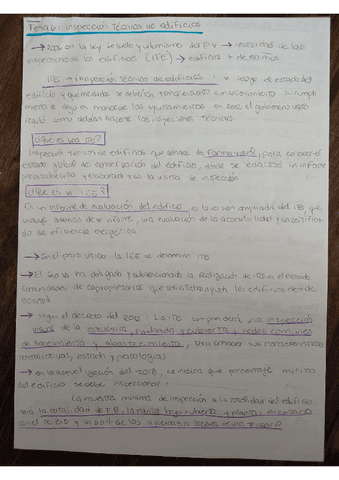 Tema 6: inspección técnica de edificios
→ 2006 en la ley de suelo y urbanismo del PV → necesidad de las
inspecciones de los edificios (ITE) → edificios + de 50 años
ITE → inspección técnica de edificios: recoge el estado del
edificio y que medidas se deberían tomar
miento se dejó en manos de los ayuntamientos en 2012 el gobierno vasco
reguló como debían hacerse las inspecciones técnicas.
¿Qué es una ITE?
Inspección técnica de edificios que se hace de forma visual, para conocer el
estado global de conservación del edificio, donde se redacta un informe
preestablecido y elaborado tras la visita de inspección
¿Qué es un IEE?
Es un informe de evaluación del edificio, es la versión ampliada del ITE que
incluye además de informe, una evaluación de la accesibilidad y un certificado
de eficiencia energética
→ En el país vasco la IEE se denomina ITE
→ El Gov ha obligado y subvencionado la realización de ITEs en el caso de
comunidades de copropietarios que ayudas los edificios de + de
50 años
→ según el decreto del 2012 - La ITE comprenderá una inspección
visual de la estructura, fachada y cubierta, redes comunes
de saneamiento y abastecimiento, para conocer sus características
constructivas, estado y patologías
→ en la actualización del 2018, se indica que porcentaje mínimo
del edificio se debe inspeccionar:
La muestra mínima de inspección a la totalidad del edificio
será la total: dad de PB, la planta bajo cubierta y plantas en contacto
con el terreno y un